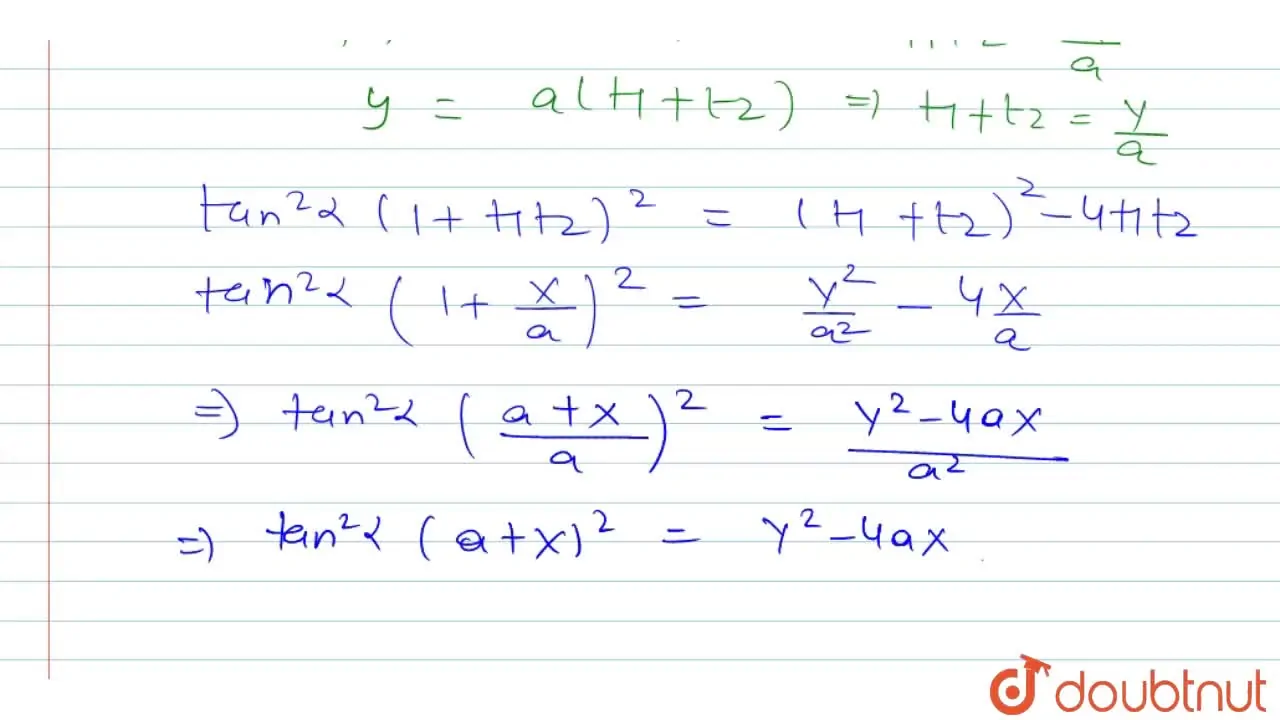 a
y = a(t1+t2) => t1+t2 = y/a
tan²α (1+t1t2)² = (t1+t2)²-4t1t2
tan²α (1+x/a)² = y²/a² - 4x/a
=> tan²α (a+x/a)² = y²-4ax/a²
=> tan²α (a+x)² = y²-4ax
doubtnut